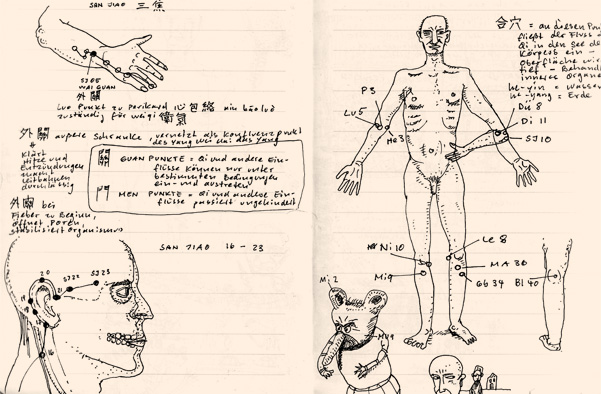 SAN JIAO 三焦
SJ05
WAI GUAN
外關
Luo Punkt zu Perikard 心包絡 xin bāo luò
zuständig für weiqi 衛氣
外關 äußere Schranke, vernetzt als Konfluenzpunkt
des Yang wei mai das Yang
Klärt
Hitze und
Entzündungen
macht
Leitbahnen
durchlässig
關 GUAN PUNKTE = Qi und andere Ein-
flüsse können nur unter
bestimmten Bedingungen
ein- und austreten
門 MEN PUNKTE = Qi und andere Ein-
flüsse passiert ungehindert
外關 bei
Fieber zu Beginn,
öffnet Poren,
stabilisiert Organismus
SAN JIAO 16 - 23
20
SJ22
SJ23
21
19
18
17
16
合穴 = an diesen
fließt der Fluss d
Qi in den See de
Körpers ein -
Oberfläche wi
tief - Behand
innerer Organe
he-yin = Wasser
he-yang = Erde
P3
Lu5
He3
Dü 8
Di 11
SJ10
Ni 10
Mi 9
Le 8
MA 36
Gb 34
Bl 40
Mi 2